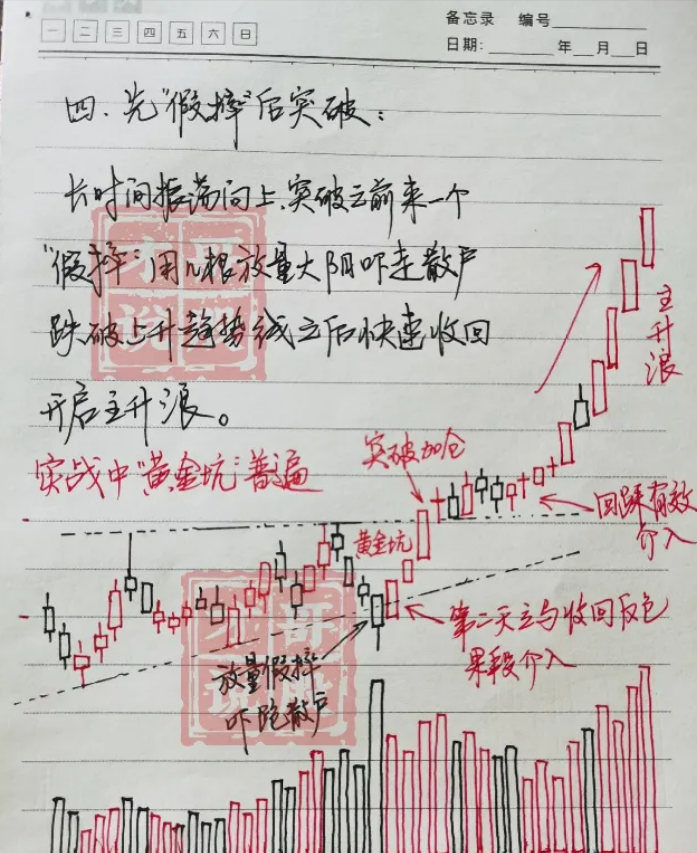 备忘录 编号
一 二 三 四 五 六 日
日期: 年 月 日
四、先“假摔”后突破:
长时间振荡向上,突破之前来一个
“假摔”用几根放量大阴吓走散户
跌破上升趋势线之后快速收回
开启主升浪。
实战中“黄金坑”普遍
主升浪
突破加仓
回踩有效
介入
黄金坑
第二天立马收回反包
果段介入
放量假摔
吓跑散户